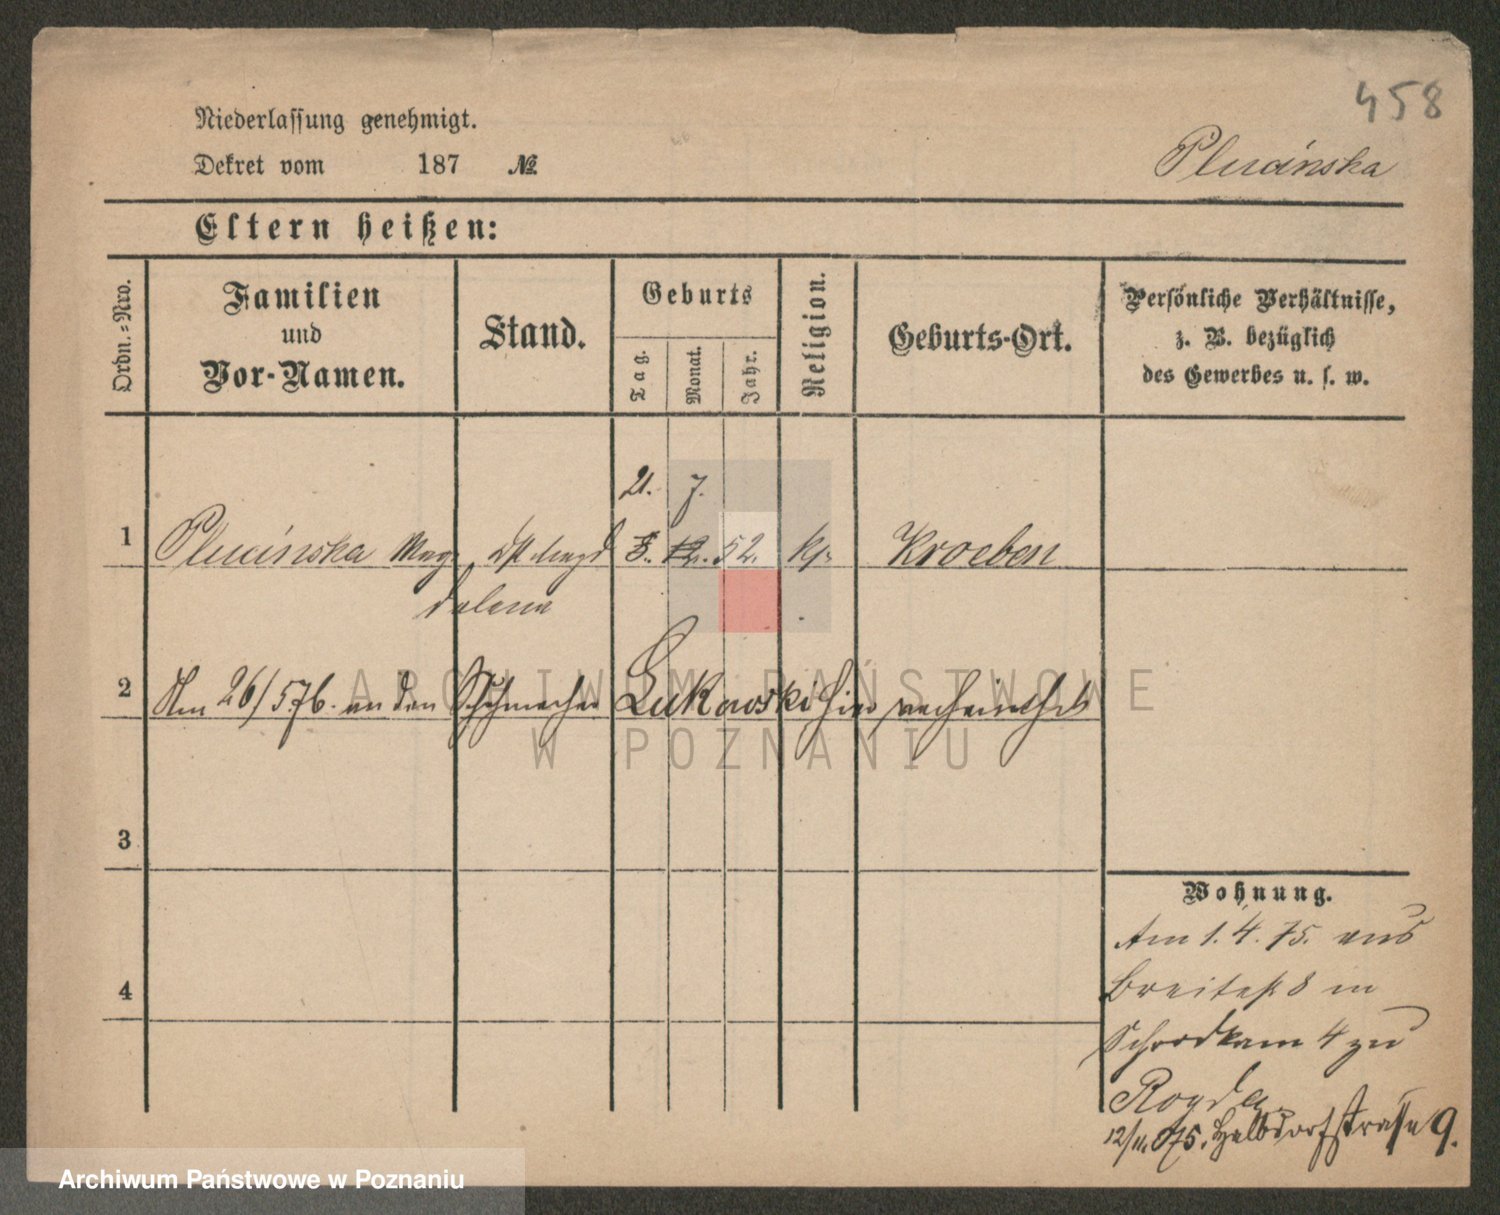 458
Niederlassung genehmigt.
Dekret vom 187 №
Plucinska
Eltern heißen:
Ordn.=Nro.
Familien
und
Vor-Namen.
Stand.
Geburts
Tag.
Monat.
Jahr.
Religion.
Geburts-Ort.
Persönliche Verhältnisse,
z. B. bezüglich
des Gewerbes u. s. w.
21. 7.
1 Plucinska Mag- 52. Kroeben
dalena
2 Am 26/5 76. an den Schuhmacher Lukowski hier verheirathet
3
4
Wohnung.
Am 1.4.75. aus
Breitestr 8 in
4 zu
12/11.75. Halbdorfstrasse 9.
ARCHIWUM PAŃSTWOWE
W POZNANIU
Archiwum Państwowe w Poznaniu